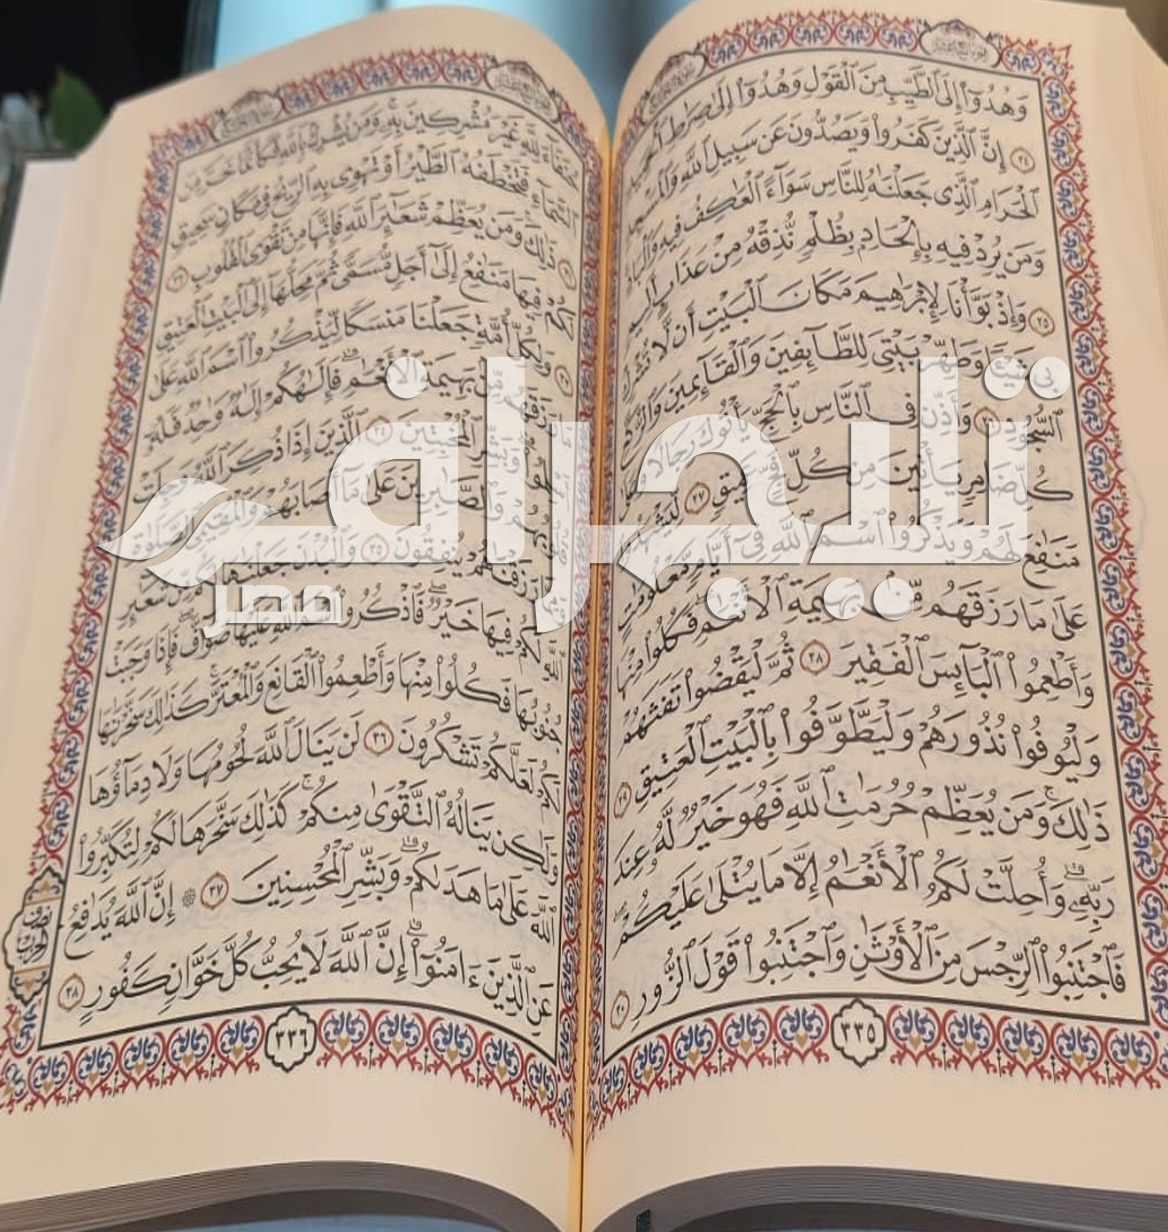 وَهُدُوٓا۟ إِلَى ٱلطَّيِّبِ مِنَ ٱلْقَوْلِ وَهُدُوٓا۟ إِلَىٰ صِرَٰطِ ٱلْحَمِيدِ
٢٤ إِنَّ ٱلَّذِينَ كَفَرُوا۟ وَيَصُدُّونَ عَن سَبِيلِ ٱللَّهِ وَٱلْمَسْجِدِ
ٱلْحَرَامِ ٱلَّذِى جَعَلْنَٰهُ لِلنَّاسِ سَوَآءً ٱلْعَٰكِفُ فِيهِ وَٱلْبَادِ
وَمَن يُرِدْ فِيهِ بِإِلْحَادٍۭ بِظُلْمٍ نُّذِقْهُ مِنْ عَذَابٍ أَلِيمٍ
٢٥ وَإِذْ بَوَّأْنَا لِإِبْرَٰهِيمَ مَكَانَ ٱلْبَيْتِ أَن لَّا تُشْرِكْ
بِى شَيْـًٔا وَطَهِّرْ بَيْتِىَ لِلطَّآئِفِينَ وَٱلْقَآئِمِينَ وَٱلرُّكَّعِ
ٱلسُّجُودِ ٢٦ وَأَذِّن فِى ٱلنَّاسِ بِٱلْحَجِّ يَأْتُوكَ رِجَالًا وَعَلَىٰ
كُلِّ ضَامِرٍ يَأْتِينَ مِن كُلِّ فَجٍّ عَمِيقٍ ٢٧ لِّيَشْهَدُوا۟
مَنَٰفِعَ لَهُمْ وَيَذْكُرُوا۟ ٱسْمَ ٱللَّهِ فِىٓ أَيَّامٍ مَّعْلُومَٰتٍ
عَلَىٰ مَا رَزَقَهُم مِّنۢ بَهِيمَةِ ٱلْأَنْعَٰمِ فَكُلُوا۟ مِنْهَا
وَأَطْعِمُوا۟ ٱلْبَآئِسَ ٱلْفَقِيرَ ٢٨ ثُمَّ لْيَقْضُوا۟ تَفَثَهُمْ
وَلْيُوفُوا۟ نُذُورَهُمْ وَلْيَطَّوَّفُوا۟ بِٱلْبَيْتِ ٱلْعَتِيقِ ٢٩
ذَٰلِكَ وَمَن يُعَظِّمْ حُرُمَٰتِ ٱللَّهِ فَهُوَ خَيْرٌ لَّهُۥ عِندَ
رَبِّهِۦ وَأُحِلَّتْ لَكُمُ ٱلْأَنْعَٰمُ إِلَّا مَا يُتْلَىٰ عَلَيْكُمْ
فَٱجْتَنِبُوا۟ ٱلرِّجْسَ مِنَ ٱلْأَوْثَٰنِ وَٱجْتَنِبُوا۟ قَوْلَ ٱلزُّورِ ٣٠
٣٣٥
حُنَفَآءَ لِلَّهِ غَيْرَ مُشْرِكِينَ بِهِۦ وَمَن يُشْرِكْ بِٱللَّهِ فَكَأَنَّمَا خَرَّ مِنَ
ٱلسَّمَآءِ فَتَخْطَفُهُ ٱلطَّيْرُ أَوْ تَهْوِى بِهِ ٱلرِّيحُ فِى مَكَانٍ سَحِيقٍ
٣١ ذَٰلِكَ وَمَن يُعَظِّمْ شَعَٰٓئِرَ ٱللَّهِ فَإِنَّهَا مِن تَقْوَى ٱلْقُلُوبِ ٣٢
لَكُمْ فِيهَا مَنَٰفِعُ إِلَىٰٓ أَجَلٍ مُّسَمًّى ثُمَّ مَحِلُّهَآ إِلَى ٱلْبَيْتِ ٱلْعَتِيقِ
٣٣ وَلِكُلِّ أُمَّةٍ جَعَلْنَا مَنسَكًا لِّيَذْكُرُوا۟ ٱسْمَ ٱللَّهِ عَلَىٰ
مَا رَزَقَهُم مِّنۢ بَهِيمَةِ ٱلْأَنْعَٰمِ فَإِلَٰهُكُمْ إِلَٰهٌ وَٰحِدٌ فَلَهُۥٓ
أَسْلِمُوا۟ وَبَشِّرِ ٱلْمُخْبِتِينَ ٣٤ ٱلَّذِينَ إِذَا ذُكِرَ ٱللَّهُ وَجِلَتْ
قُلُوبُهُمْ وَٱلصَّٰبِرِينَ عَلَىٰ مَآ أَصَابَهُمْ وَٱلْمُقِيمِى ٱلصَّلَوٰةِ
وَمِمَّا رَزَقْنَٰهُمْ يُنفِقُونَ ٣٥ وَٱلْبُدْنَ جَعَلْنَٰهَا لَكُم مِّن شَعَٰٓئِرِ
ٱللَّهِ لَكُمْ فِيهَا خَيْرٌ فَٱذْكُرُوا۟ ٱسْمَ ٱللَّهِ عَلَيْهَا صَوَآفَّ فَإِذَا وَجَبَتْ
جُنُوبُهَا فَكُلُوا۟ مِنْهَا وَأَطْعِمُوا۟ ٱلْقَانِعَ وَٱلْمُعْتَرَّ كَذَٰلِكَ سَخَّرْنَٰهَا
لَكُمْ لَعَلَّكُمْ تَشْكُرُونَ ٣٦ لَن يَنَالَ ٱللَّهَ لُحُومُهَا وَلَا دِمَآؤُهَا
وَلَٰكِن يَنَالُهُ ٱلتَّقْوَىٰ مِنكُمْ كَذَٰلِكَ سَخَّرَهَا لَكُمْ لِتُكَبِّرُوا۟
ٱللَّهَ عَلَىٰ مَا هَدَىٰكُمْ وَبَشِّرِ ٱلْمُحْسِنِينَ ٣٧ ۞ إِنَّ ٱللَّهَ يُدَٰفِعُ
عَنِ ٱلَّذِينَ ءَامَنُوٓا۟ إِنَّ ٱللَّهَ لَا يُحِبُّ كُلَّ خَوَّانٍ كَفُورٍ ٣٨
نصف
الحزب
٣٣٦
تليجراف
مصر